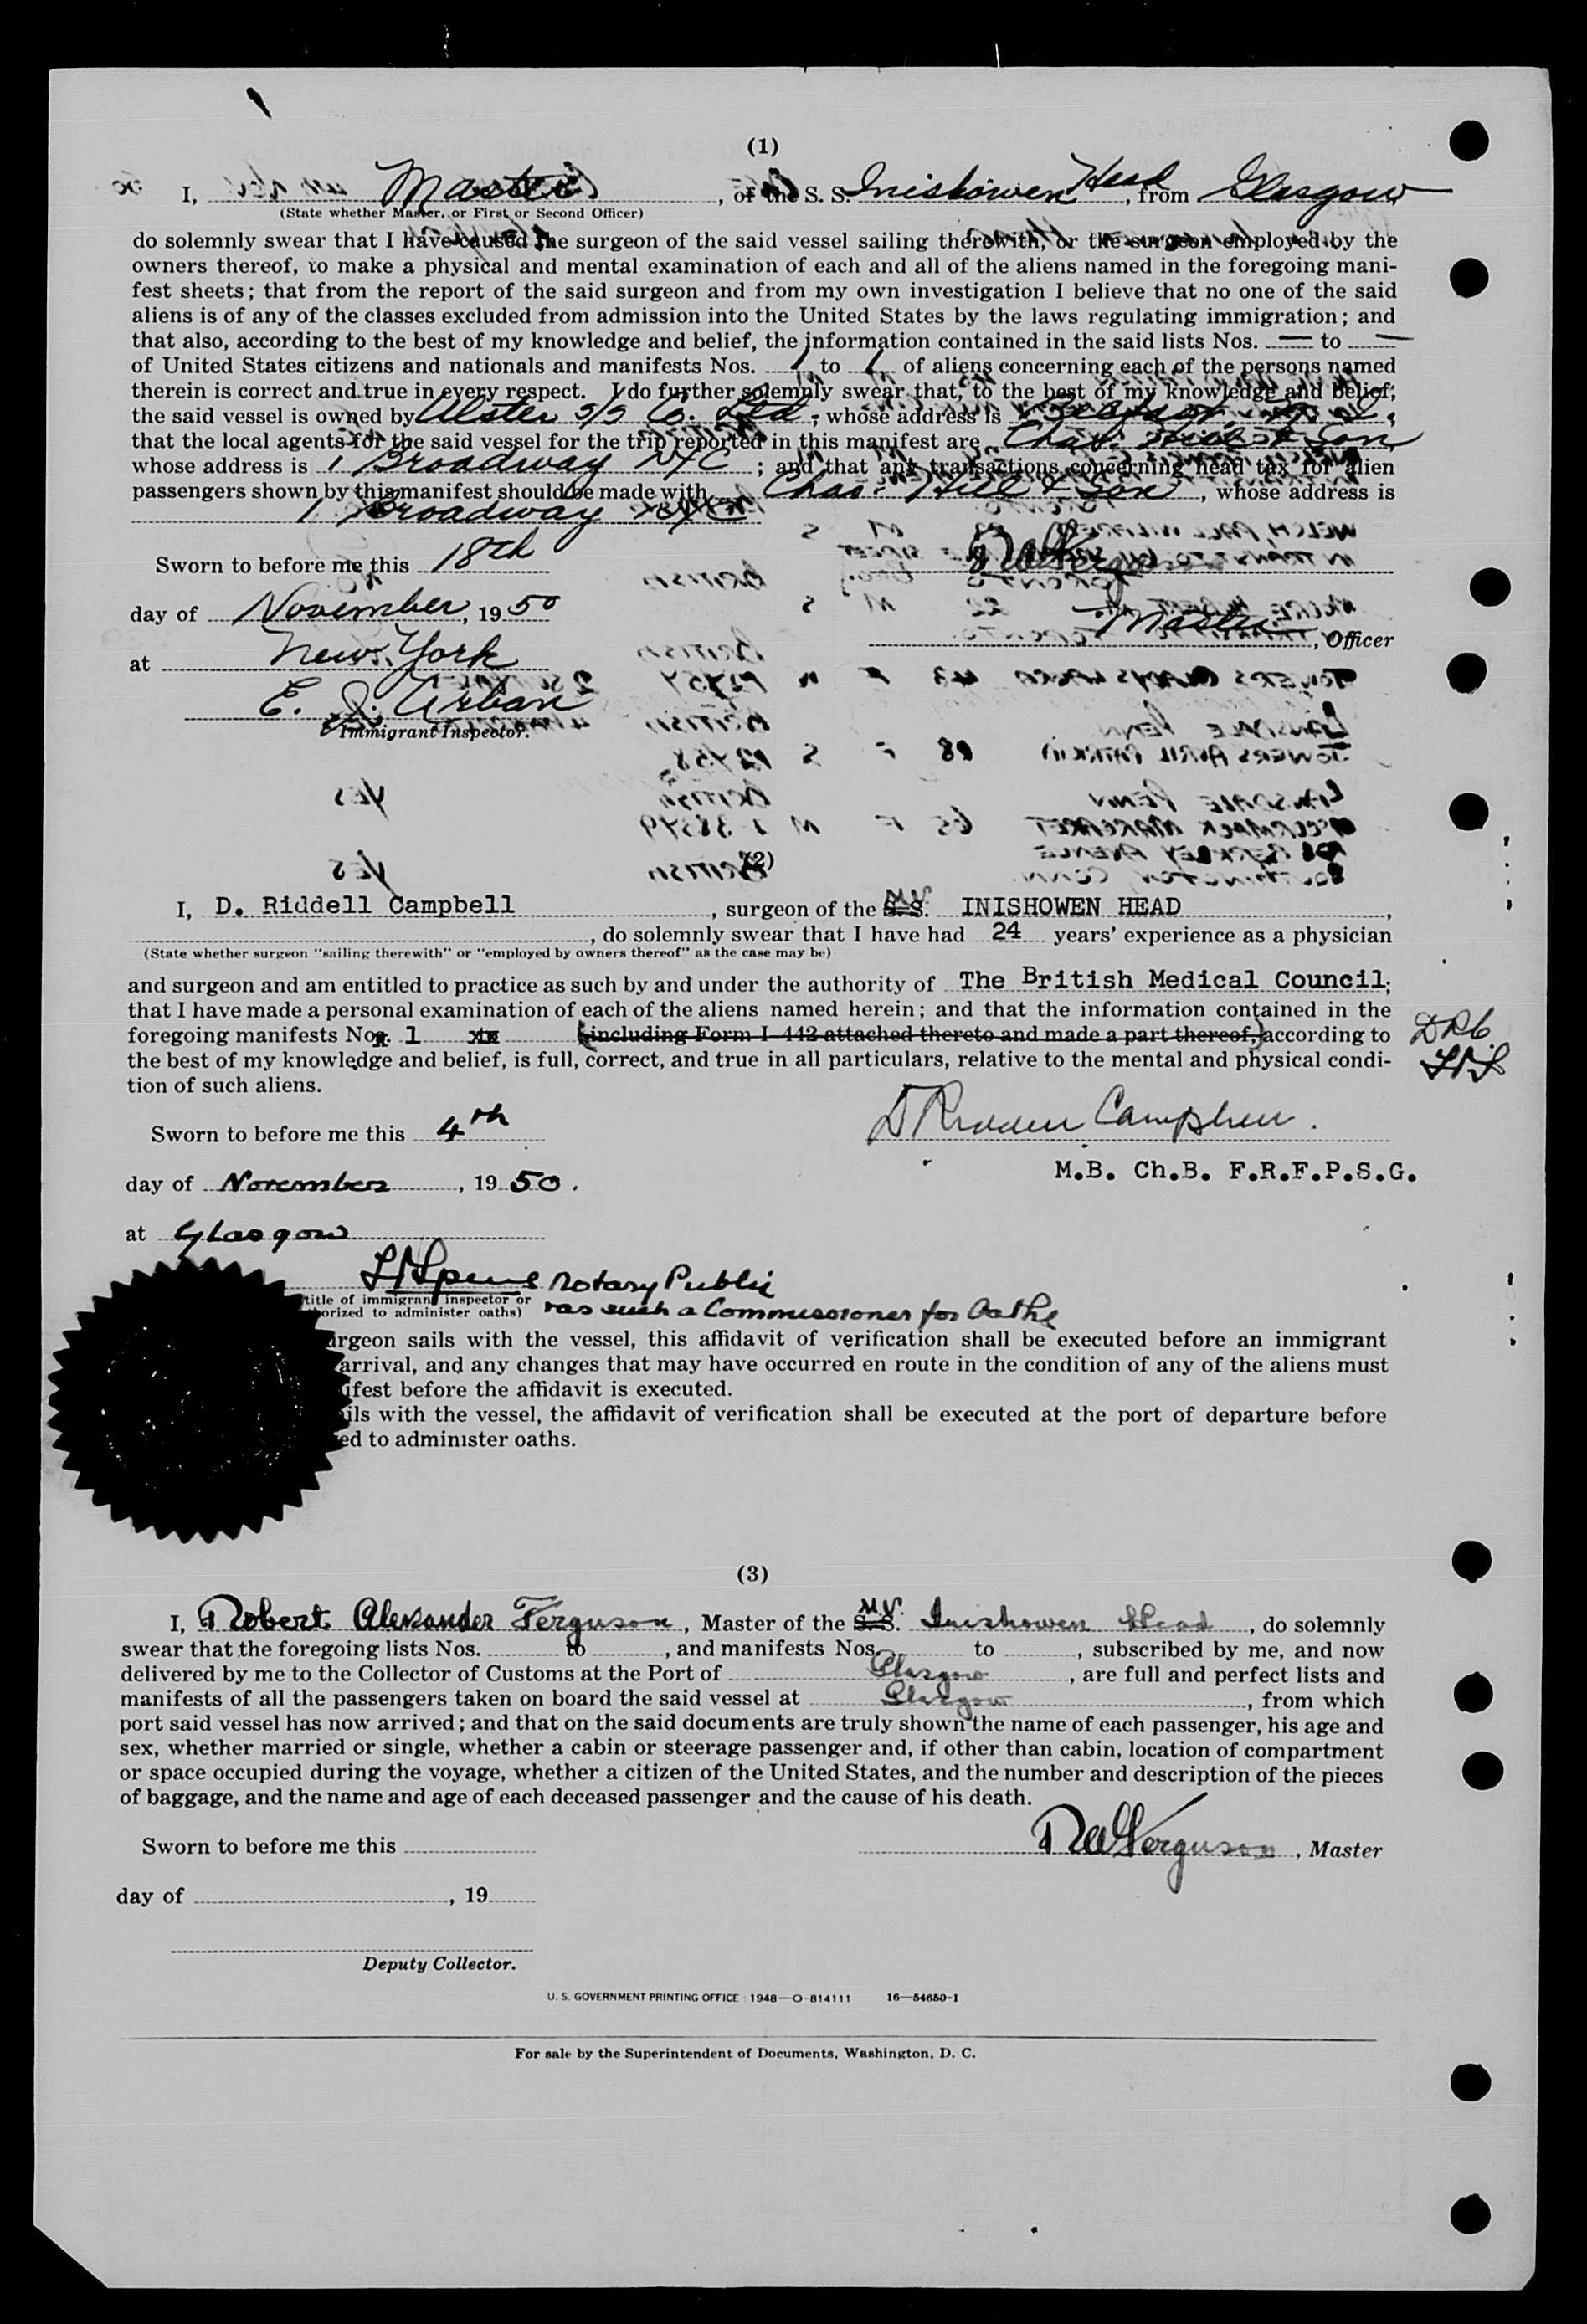 (1)
I, Master, of the S. S. Inishowen Head, from Glasgow
(State whether Master, or First or Second Officer)
do solemnly swear that I have caused the surgeon of the said vessel sailing therewith, or the surgeon employed by the
owners thereof, to make a physical and mental examination of each and all of the aliens named in the foregoing mani-
fest sheets; that from the report of the said surgeon and from my own investigation I believe that no one of the said
aliens is of any of the classes excluded from admission into the United States by the laws regulating immigration; and
that also, according to the best of my knowledge and belief, the information contained in the said lists Nos. — to —
of United States citizens and nationals and manifests Nos. 1 to 1 of aliens concerning each of the persons named
therein is correct and true in every respect. I do further solemnly swear that, to the best of my knowledge and belief,
the said vessel is owned by Ulster S/S Co. Ltd; whose address is Belfast,
that the local agents for the said vessel for the trip reported in this manifest are Chas. Hill & Son
whose address is 1 Broadway NYC; and that any transactions concerning head tax for alien
passengers shown by this manifest should be made with Chas. Hill & Son, whose address is
1 Broadway NYC
Sworn to before me this 18th
day of November, 1950
Master, Officer
at New York
E. J. Urban
Immigrant Inspector.
(2)
I, D. Riddell Campbell, surgeon of the S. S. M.V. INISHOWEN HEAD,
, do solemnly swear that I have had 24 years' experience as a physician
(State whether surgeon "sailing therewith" or "employed by owners thereof" as the case may be)
and surgeon and am entitled to practice as such by and under the authority of The British Medical Council;
that I have made a personal examination of each of the aliens named herein; and that the information contained in the
foregoing manifests Nos. 1 to (including Form I-442 attached thereto and made a part thereof,) according to
DRC
the best of my knowledge and belief, is full, correct, and true in all particulars, relative to the mental and physical condi-
tion of such aliens.
Sworn to before me this 4th
D Riddell Campbell.
M.B. Ch.B. F.R.F.P.S.G.
day of November, 1950.
at Glasgow
Notary Public
title of immigrant inspector or
orized to administer oaths)
as such a Commissioner for Oaths
urgeon sails with the vessel, this affidavit of verification shall be executed before an immigrant
arrival, and any changes that may have occurred en route in the condition of any of the aliens must
ifest before the affidavit is executed.
ils with the vessel, the affidavit of verification shall be executed at the port of departure before
ed to administer oaths.
(3)
I, Robert Alexander Ferguson, Master of the S. S. M.V. Inishowen Head, do solemnly
swear that the foregoing lists Nos. to , and manifests Nos. to , subscribed by me, and now
delivered by me to the Collector of Customs at the Port of Glasgow, are full and perfect lists and
manifests of all the passengers taken on board the said vessel at Glasgow, from which
port said vessel has now arrived; and that on the said documents are truly shown the name of each passenger, his age and
sex, whether married or single, whether a cabin or steerage passenger and, if other than cabin, location of compartment
or space occupied during the voyage, whether a citizen of the United States, and the number and description of the pieces
of baggage, and the name and age of each deceased passenger and the cause of his death.
Sworn to before me this
RA Ferguson, Master
day of , 19
Deputy Collector.
U. S. GOVERNMENT PRINTING OFFICE : 1948—O-814111 16—54650-1
For sale by the Superintendent of Documents, Washington, D. C.